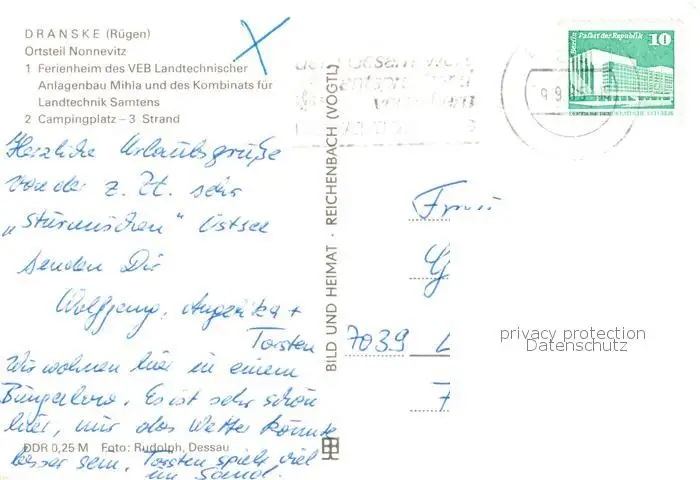 DRANSKE (Rügen)
Ortsteil Nonnevitz
1 Ferienheim des VEB Landtechnischer
Anlagenbau Mihla und des Kombinats für
Landtechnik Samtens
2 Campingplatz – 3 Strand
Herzliche Urlaubsgrüße
von der z. Zt. sehr
„stürmischen" Ostsee
senden Dir
Wolfgang, Angelika +
Torsten
Wir wohnen hier in einem
Bungalow. Es ist sehr schön
hier, nur das Wetter könnte
besser sein. Torsten spielt viel
im Sand.
DDR 0,25 M Foto: Rudolph, Dessau
BILD UND HEIMAT · REICHENBACH (VOGTL)
Berlin Palast der Republik
10
Frau
7039 L
privacy protection
Datenschutz